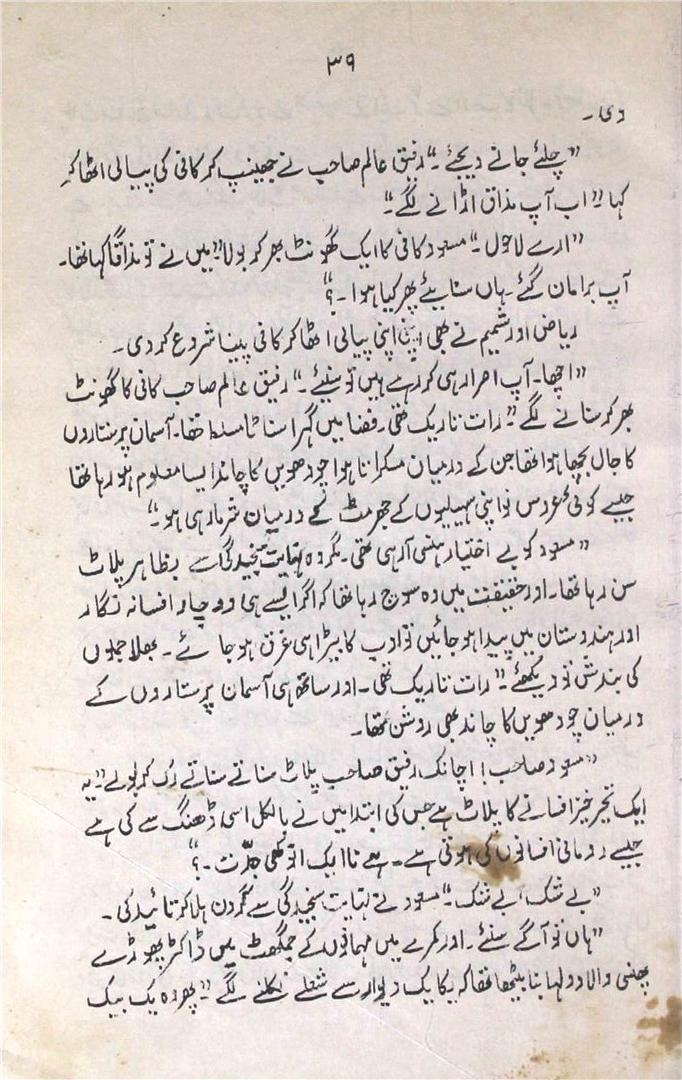 ۳۹
دی۔
"چلئے جانے دیجئے۔" رفیق عالم صاحب نے جھینپ کر کافی کی پیالی اٹھا کر
کہا "اب آپ مذاق اڑانے لگے"۔
"ارے لاحول۔" مسعود کافی کا ایک گھونٹ بھر کر بولا "میں نے تو مذاقاً کہا تھا۔
آپ برا مان گئے۔ ہاں سنایئے پھر کیا ہوا۔؟"
ریاض اور شمیم نے بھی اپنی اپنی پیالی اٹھا کر کافی پینا شروع کر دی۔
"اچھا۔ آپ اصرار ہی کر رہے ہیں تو سنیئے۔" رفیق عالم صاحب کافی کا گھونٹ
بھر کر سنانے لگے "رات تاریک تھی۔ فضا میں گہرا سناٹا مسلط تھا۔ آسمان پر ستاروں
کا جال بچھا ہوا تھا جن کے درمیان مسکراتا ہوا چودھویں کا چاند ایسا معلوم ہو رہا تھا
جیسے کوئی عروس نو اپنی سہیلیوں کے جھرمٹ کے درمیان شرما رہی ہو۔"
"مسعود کو بے اختیار ہنسی آ رہی تھی۔ مگر وہ نہایت سنجیدگی سے بظاہر پلاٹ
سن رہا تھا۔ اور حقیقت میں وہ سوچ رہا تھا کہ اگر ایسے ہی دو چار افسانہ نگار
اور ہندوستان میں پیدا ہو جائیں تو ادب کا بیڑا ہی غرق ہو جائے۔ بھلا جملوں
کی بندش تو دیکھئے۔" رات تاریک تھی۔ اور ساتھ ہی آسمان پر ستاروں کے
درمیان چودھویں کا چاند بھی روشن تھا۔
"مسعود صاحب! اچانک رفیق صاحب پلاٹ سناتے سناتے رک کر بولے "یہ
ایک تحیر خیز افسانے کا پلاٹ ہے جس کی ابتدا میں نے بالکل اسی ڈھنگ سے کی ہے
جیسے رومانی افسانوں کی ہوتی ہے۔ ہے نا ایک انوکھی جدّت۔؟"
"بے شک بے شک۔" مسعود نے نہایت سنجیدگی سے گردن ہلا کر تائید کی۔
"ہاں تو آگے سنئے۔ اور کمرے میں مہمانوں کے جمگھٹ میں ڈاکٹر پھوڑے
پھنسی والا دولہا بنا بیٹھا تھا کہ یکایک دیوار سے شعلے نکلنے لگے "پھر وہ یک بیک